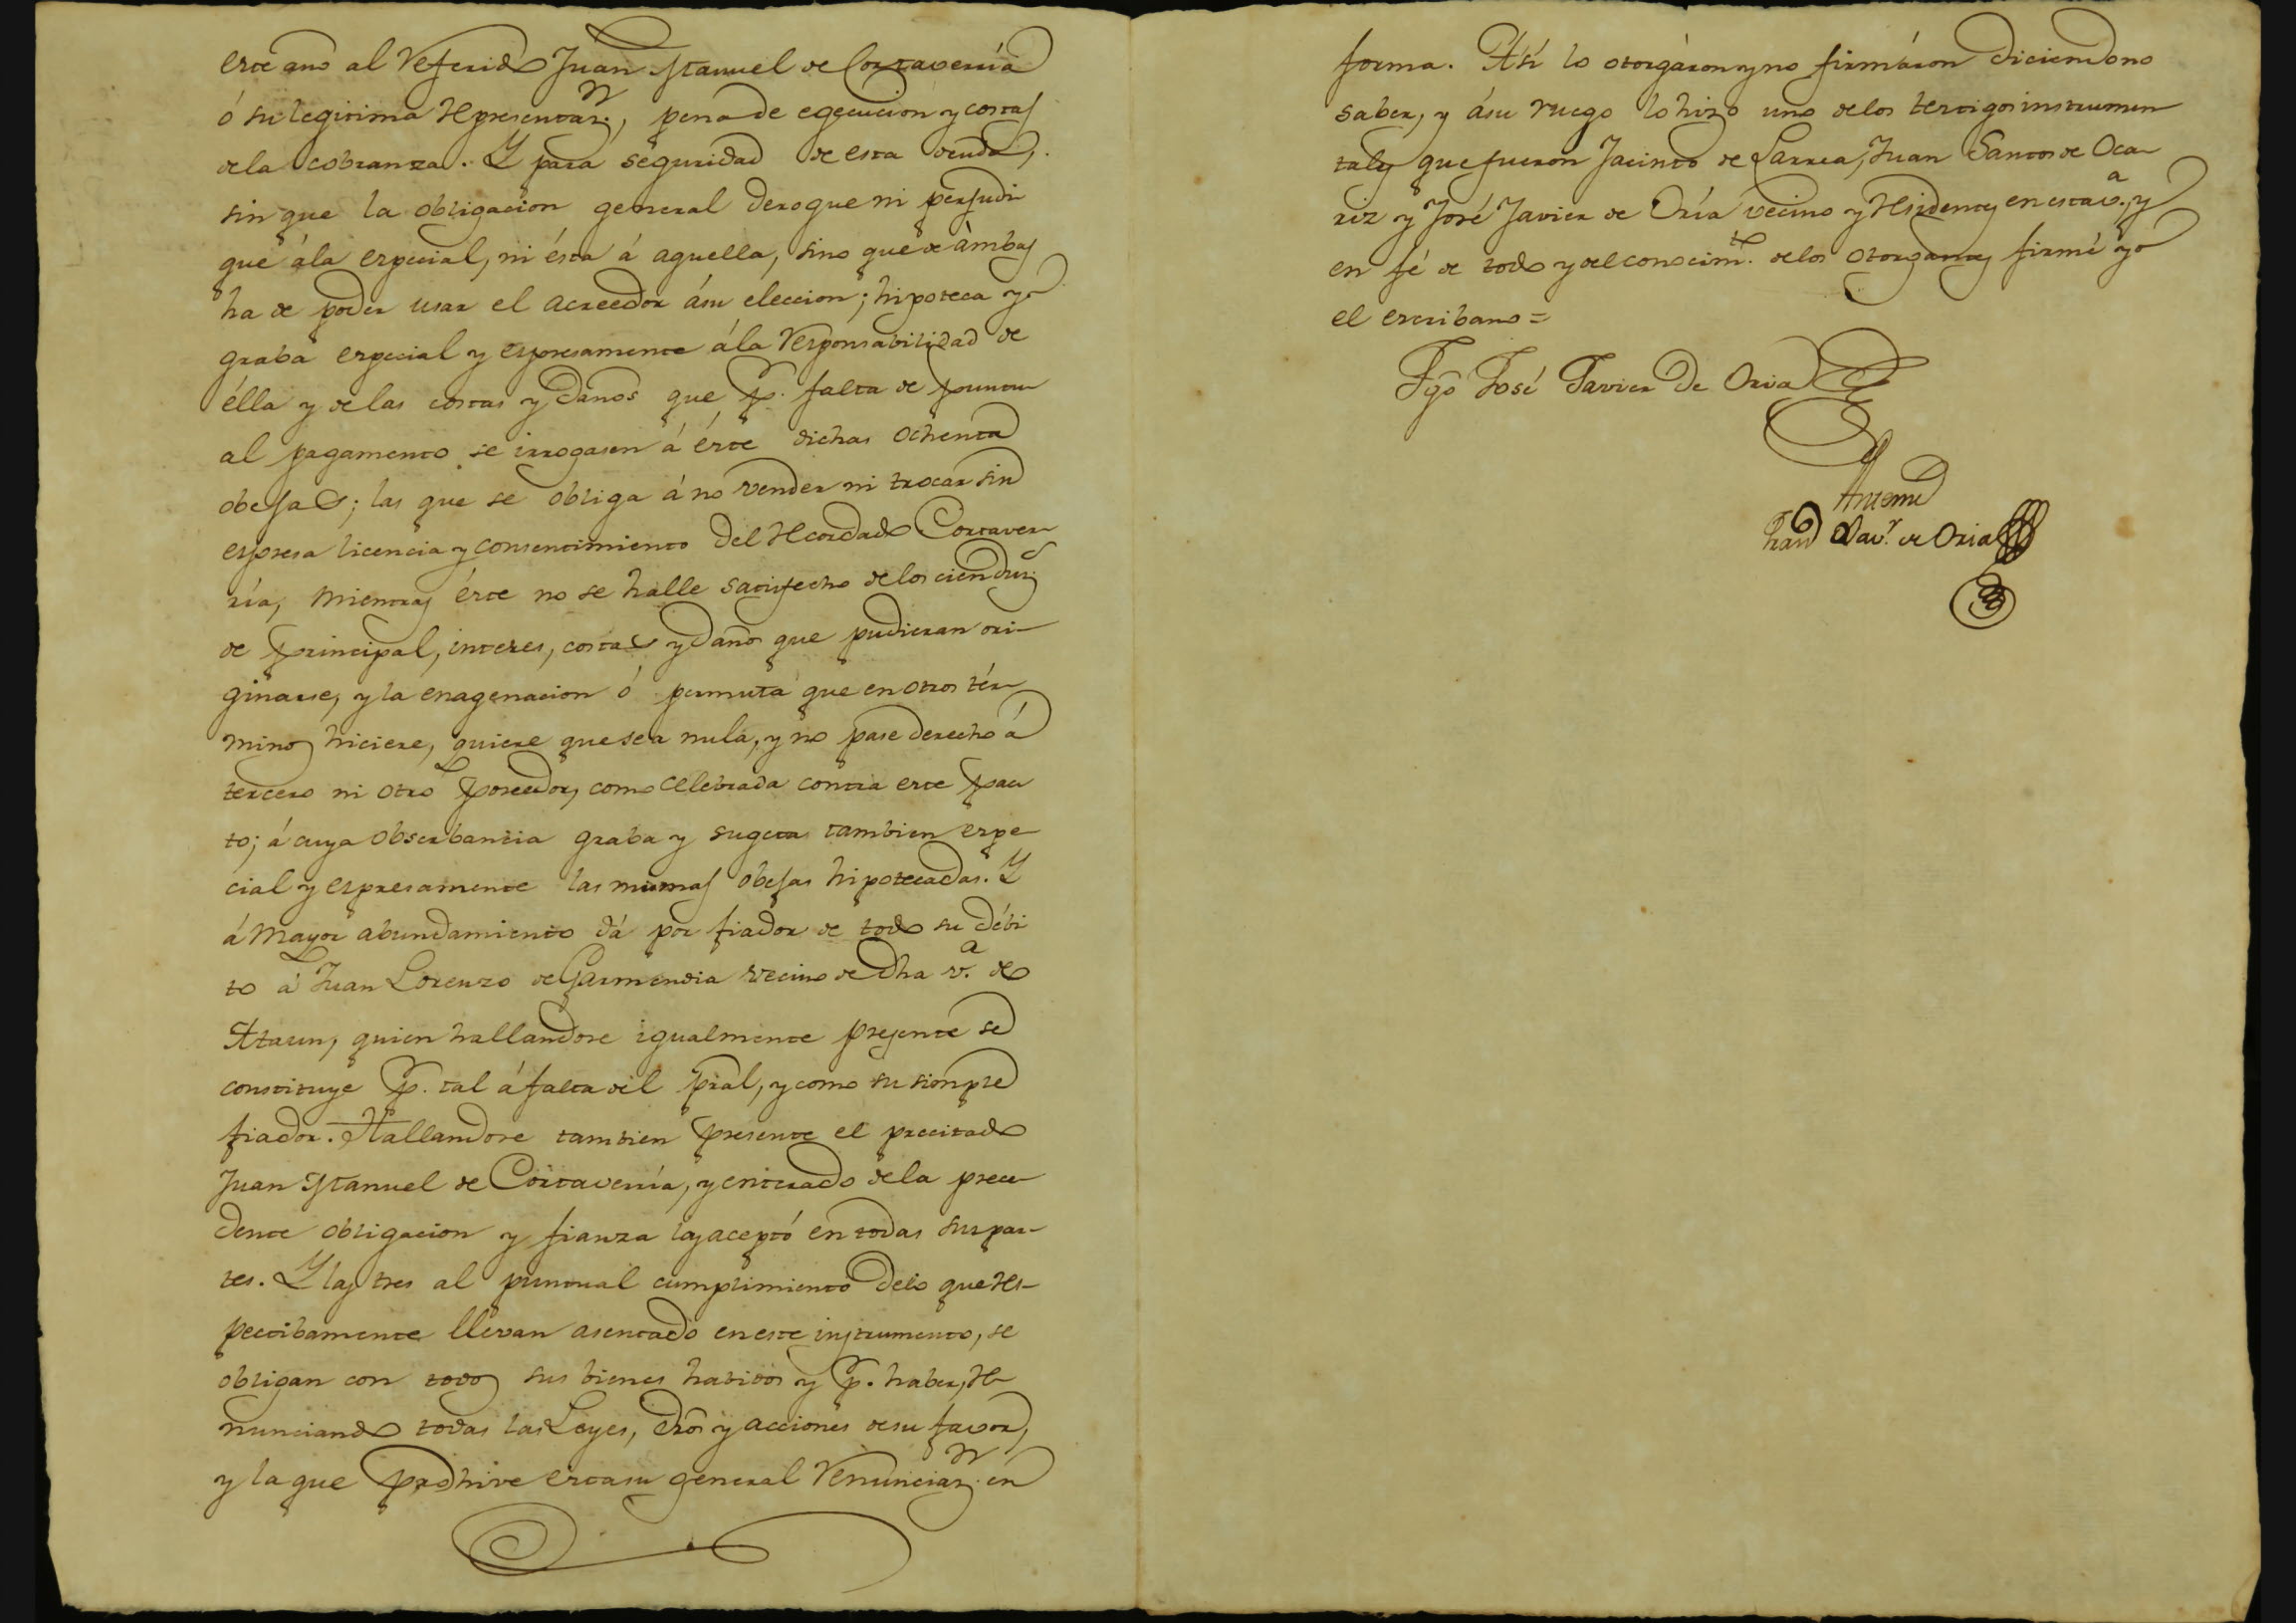 este año al referido Juan Manuel de Cortaverría
ó su legitima representaz.n, pena de egecucion y costas
de la cobranza. Y para seguridad de esta deuda,
sin que la obligacion general derogue ni perjudi
que á la especial, ni ésta á aquella, sino que de ámbas
ha de poder usar el acreedor á su eleccion; hipoteca y
graba especial y espresamente á la responsabilidad de
élla y de las costas y daños que p.r falta de puntu
al pagamento se irrogasen á éste dichas ochenta
obejas; las que se obliga á no vender ni trocar sin
espresa licencia y consentimiento del recordado Cortaver
ría, mientras éste no se halle satisfecho de los cien duc.s
de principal, interes, costas y daños que pudieran ori-
ginarse, y la enagenacion ó permuta que en otros tér
minos hiciere, quiere que sea nula, y no pase derecho á
tercero ni otro poseedor, como celebrada contra este pac
to; á cuya obserbancia graba y sugeta tambien espe-
cial y espresamente las mismas obejas hipotecadas. Y
á mayor abundamiento dá por fiador de todo su débi
to á Juan Lorenzo de Garmendia vecino de dha v.a de
Ataun, quien hallandose igualmente presente se
constituye p.r tal á falta del pral, y como su simple
fiador. Hallandose tambien presente el precitado
Juan Manuel de Cortaverría, y enterado de la prece
dente obligacion y fianza las aceptó en todas sus par-
tes. Y los tres al puntual cumplimiento de lo que res-
pectibamente llevan asentado en este instrumento, se
obligan con todos sus bienes habidos y p.r haber, re
nunciando todas las Leyes, dros y acciones de su favor,
y la que prohive esta su general renunciaz.n en
forma. Así lo otorgáron y no firmáron diciendo no
saber, y á su ruego lo hizo uno de los testigos instrumen
tales que fueron Jacinto de Larrea, Juan Santos de Oca-
riz y José Javier de Oría vecino y residentes en esta v.a, y
en fé de todo y del conocim.to de los otorgantes firmé yo
el escribano =
Tgo José Javier de Oria
Antemi
Fran.co Xav.r de Oria